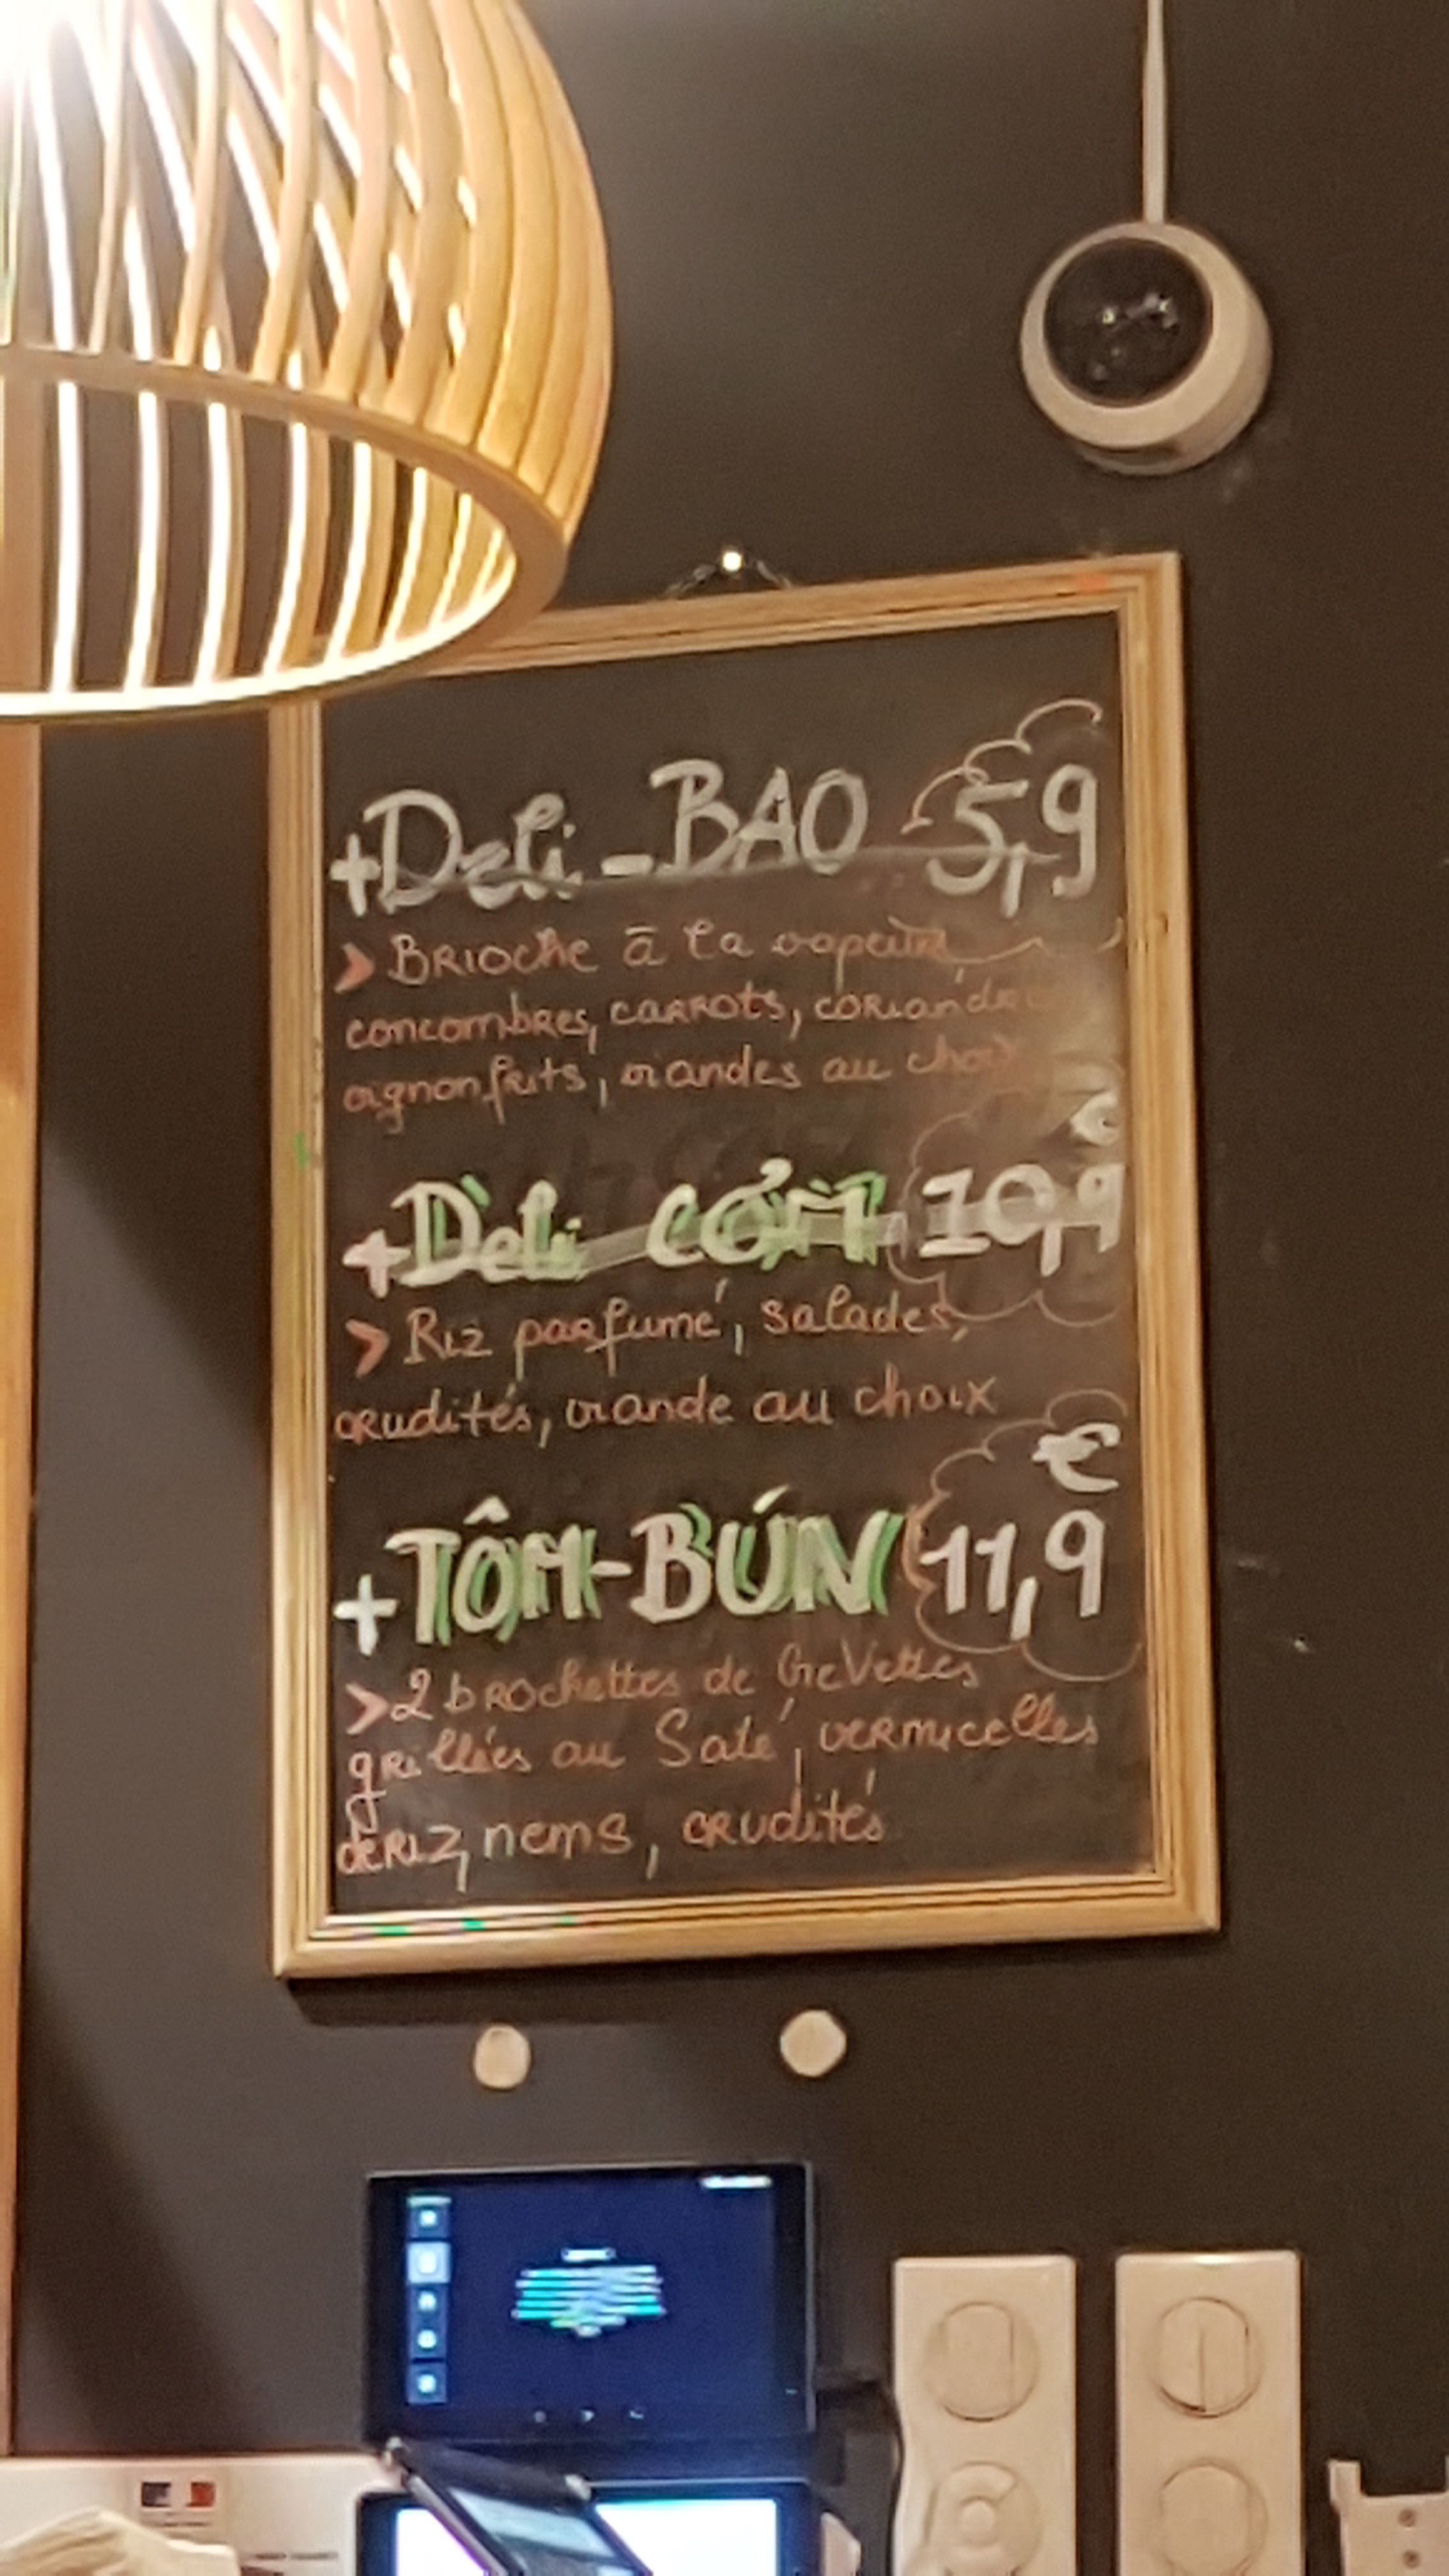 +Deli-BAO 5,9
> BRIOCHE à la vapeur,
concombres, carrots, coriandre
oignon frits, viandes au choix
€
+Deli CƠM 10,9
> Riz parfumé, salades,
crudités, viande au choix
€
+TÔM-BÚN 11,9
> 2 brochettes de CreVettes
grillées au Saté, vermicelles
de Riz, nems, crudités